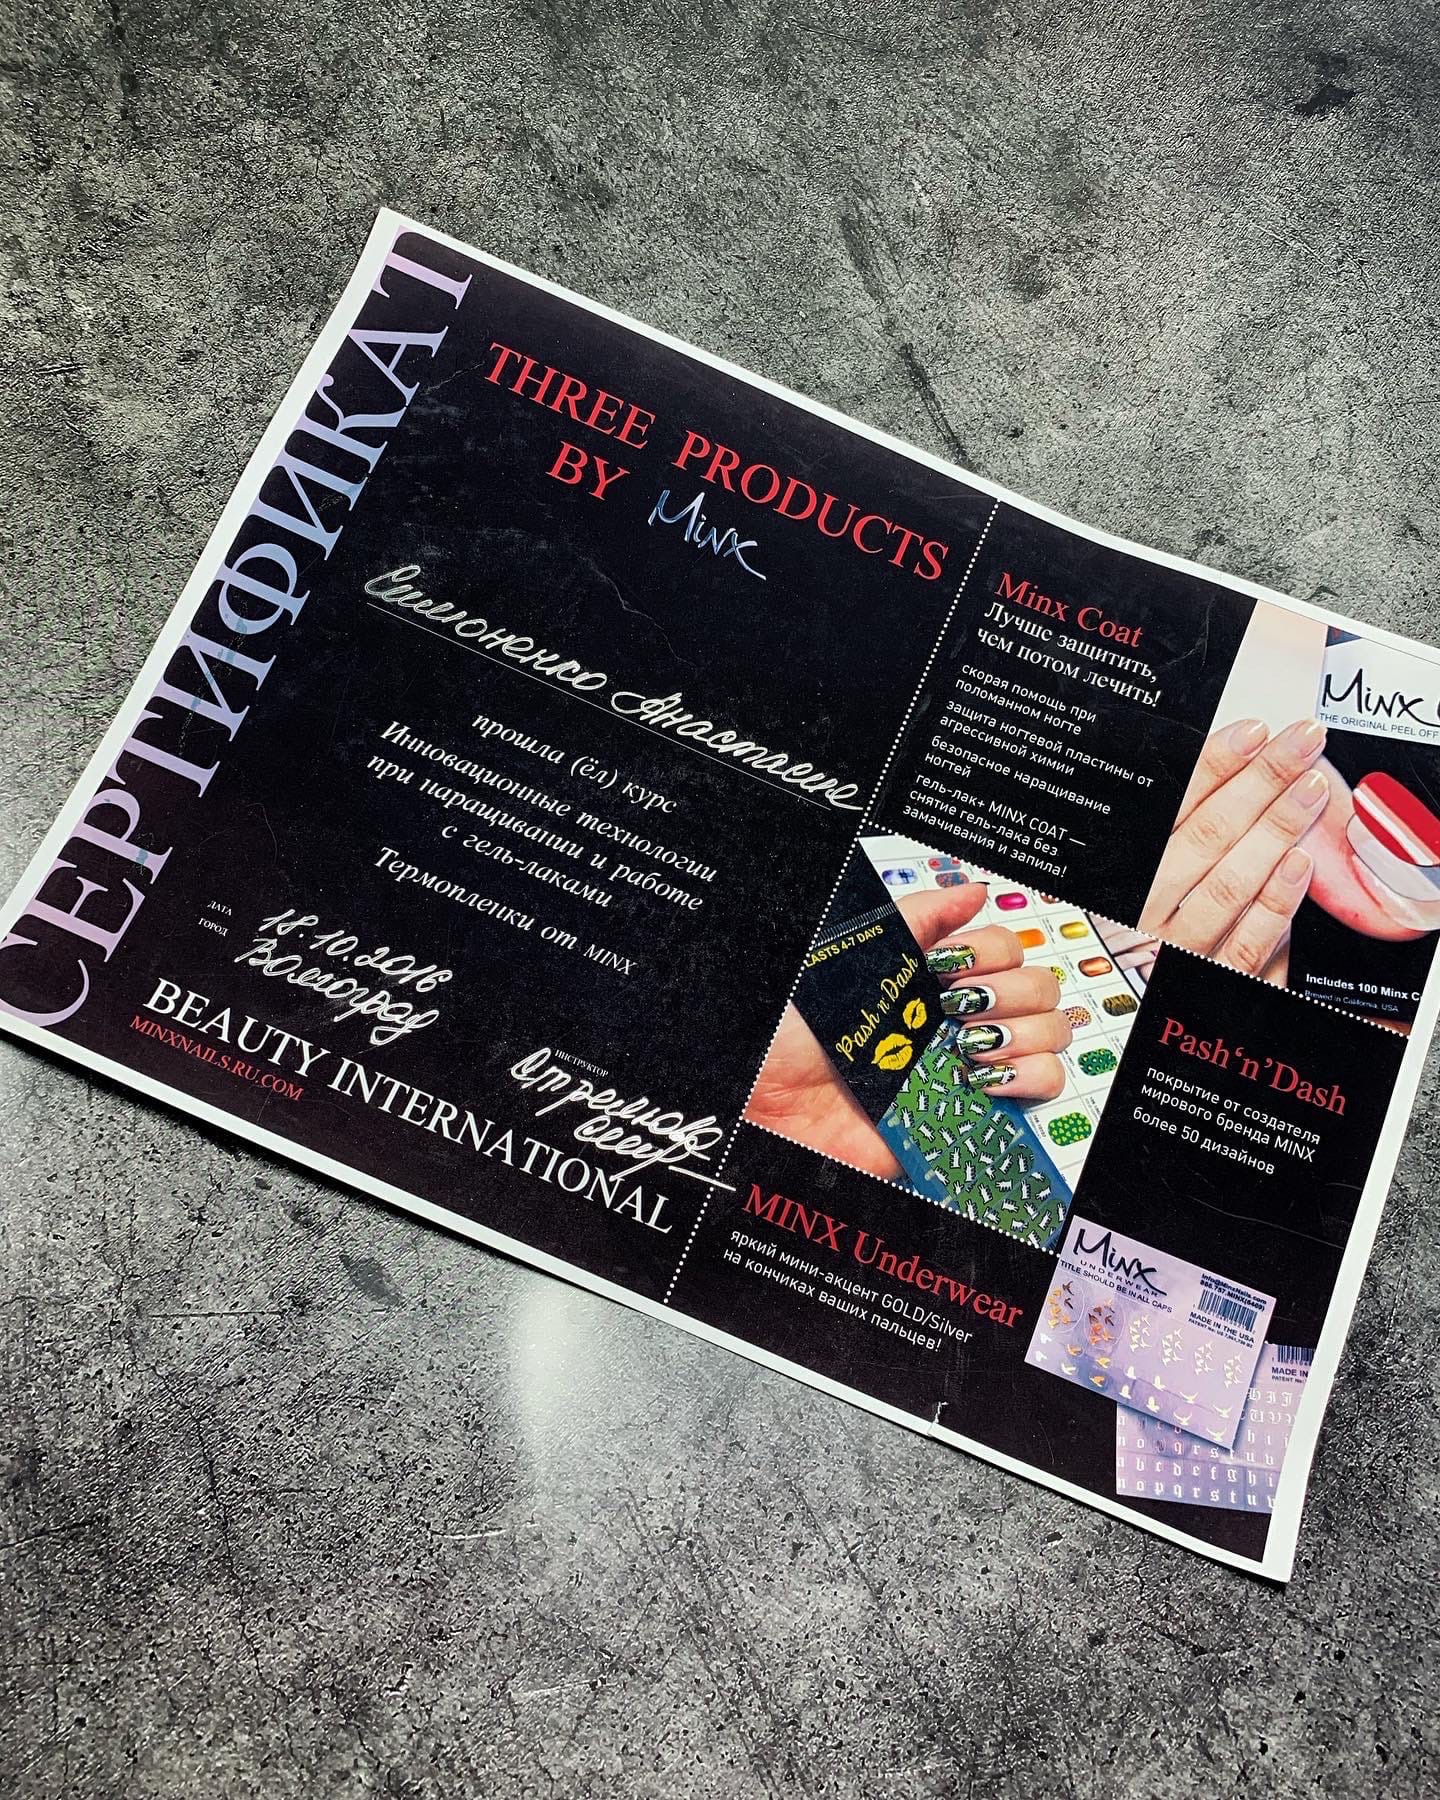 СЕРТИФИКАТ
THREE PRODUCTS
BY Minx
Симоненко Анастасие
прошла (ёл) курс
Инновационные технологии
при наращивании и работе
с гель-лаками
Термопленки от MINX
ДАТА 18.10.2016
ГОРОД Волгоград
ИНСТРУКТОР
BEAUTY INTERNATIONAL
MINXNAILS.RU.COM
Minx Coat
Лучше защитить,
чем потом лечить!
скорая помощь при
поломанном ногте
защита ногтевой пластины от
агрессивной химии
безопасное наращивание
ногтей
гель-лак+ MINX COAT —
снятие гель-лака без
замачивания и запила!
Minx
THE ORIGINAL PEEL OFF
Includes 100 Minx C
Brewed in California, USA
LASTS 4-7 DAYS
Pash n' Dash
Pash‘n’Dash
покрытие от создателя
мирового бренда MINX
более 50 дизайнов
MINX Underwear
яркий мини-акцент GOLD/Silver
на кончиках ваших пальцев!
Minx
UNDERWEAR
TITLE SHOULD BE IN ALL CAPS
MADE IN THE USA
MADE IN